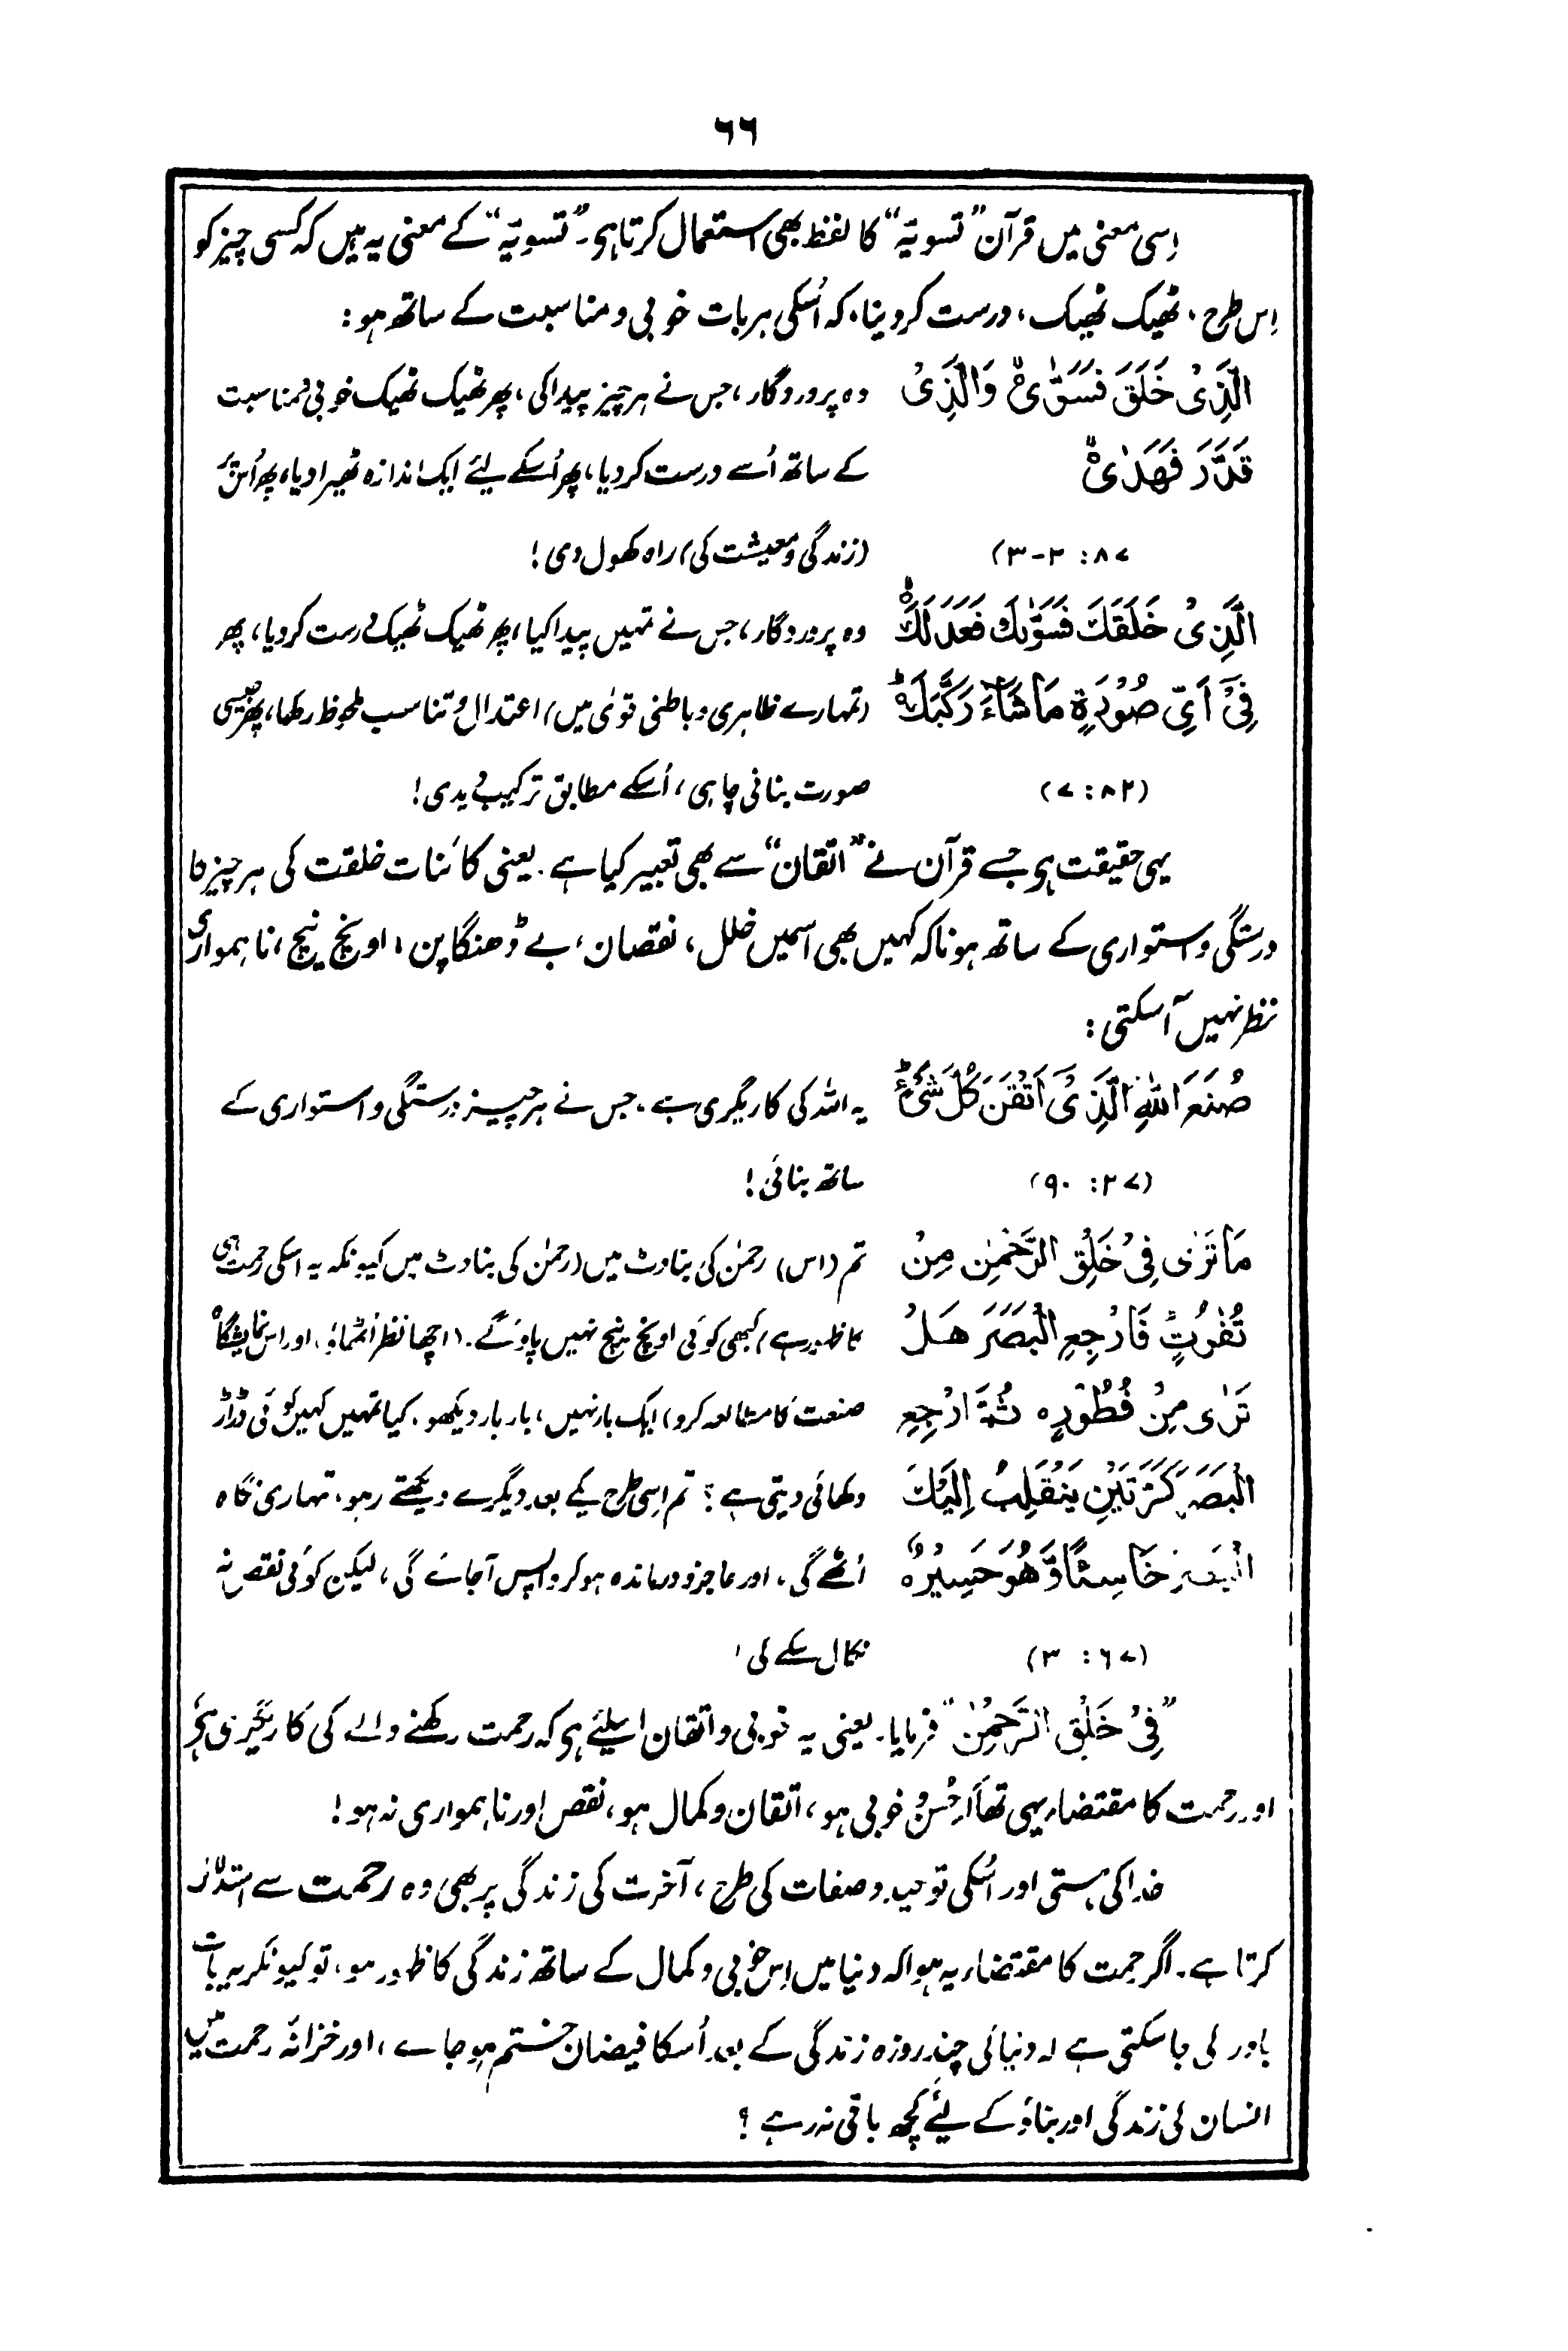 ٦٦
اِسی معنی میں قرآن "تسویّہ" کا لفظ بھی استعمال کرتا ہی۔ "تسویّہ" کے معنی یہ ہیں کہ کسی چیز کو
اِس طرح، ٹھیک ٹھیک، درست کر دینا، کہ اُسکی ہر بات خوبی و مناسبت کے ساتھ ہو:
الَّذِیْ خَلَقَ فَسَوّٰیۙ وَالَّذِیْ وہ پروردگار، جس نے ہر چیز پیدا کی، پھر ٹھیک ٹھیک خوبی و مناسبت
قَدَّرَ فَهَدٰیۙ کے ساتھ اُسے درست کر دیا، پھر اُسکے لیئے ایک اندازہ ٹھیرا دیا، پھر اُس پر
۸۷: ۲-۳) (زندگی و معیشت کی) راہ کھول دی!
الَّذِیْ خَلَقَكَ فَسَوّٰىكَ فَعَدَلَكَۙ وہ پروردگار، جس نے تمہیں پیدا کیا، پھر ٹھیک ٹھیک درست کر دیا، پھر
فِیْۤ اَیِّ صُوْرَةٍ مَّا شَآءَ رَكَّبَكَؕ (تمہارے ظاہری و باطنی قویٰ میں) اعتدال و تناسب ملحوظ رکھا، پھر جیسی
(۸۲: ۷) صورت بنانی چاہی، اُسکے مطابق ترکیب دیدی!
یہی حقیقت ہی جسے قرآن نے "اتقان" سے بھی تعبیر کیا ہے۔ یعنی کائنات خلقت کی ہر چیز کا
درستگی و استواری کے ساتھ ہونا کہ کہیں بھی اسمیں خلل، نقصان، بے ڈھنگا پن، اونچ نیچ، نا ہمواری
نظر نہیں آ سکتی:
صُنْعَ اللّٰهِ الَّذِیْۤ اَتْقَنَ كُلَّ شَیْءٍؕ یہ اللہ کی کاریگری ہے، جس نے ہر چیز درستگی و استواری کے
(۲۷: ۹۰) ساتھ بنائی!
مَا تَرٰی فِیْ خَلْقِ الرَّحْمٰنِ مِنْ تم (اس) رحمٰن کی بناوٹ میں (رحمٰن کی بناوٹ میں کیونکہ یہ اسکی رحمت ہی
تَفٰوُتٍؕ فَارْجِعِ الْبَصَرَ هَلْ کا ظہور ہے) کبھی کوئی اونچ نیچ نہیں پاؤگے۔ (اچھا نظر اُٹھاؤ، اور اس نمایشگاہ
تَرٰی مِنْ فُطُوْرٍه ثُمَّ ارْجِعِ صنعت کا مطالعہ کرو) ایک بار نہیں، بار بار دیکھو، کیا تمہیں کہیں کوئی دڑاڑ
الْبَصَرَ كَرَّتَیْنِ یَنْقَلِبْ اِلَیْكَ دکھائی دیتی ہے؟ تم اِسی طرح یکے بعد دیگرے دیکھتے رہو، تمہاری نگاہ
الْبَصَرُ خَاسِئًا وَّهُوَ حَسِیْرٌه اُٹھے گی، اور عاجز و درماندہ ہو کر واپس آ جائے گی، لیکن کوئی نقص نہ
(۶۷: ۳) نکال سکے گی!
"فِیْ خَلْقِ الرَّحْمٰنِ" فرمایا۔ یعنی یہ خوبی و اتقان اسلیئے ہی کہ رحمت رکھنے والے کی کاریگری ہی
اور رحمت کا مقتضاء یہی تھا حُسن و خوبی ہو، اتقان و کمال ہو، نقص اور نا ہمواری نہ ہو!
خدا کی ہستی اور اُسکی توحید و صفات کی طرح، آخرت کی زندگی پر بھی وہ رحمت سے استدلال
کرتا ہے۔ اگر رحمت کا مقتضاء یہ ہوا کہ دنیا میں اِس خوبی و کمال کے ساتھ زندگی کا ظہور ہو، تو کیونکر یہ بات
باور کی جا سکتی ہے کہ دنیا کی چند روزہ زندگی کے بعد اُسکا فیضان ختم ہو جائے، اور خزانۂ رحمت میں
انسان کی زندگی اور بناؤ کے لیئے کچھ باقی نہ رہے؟